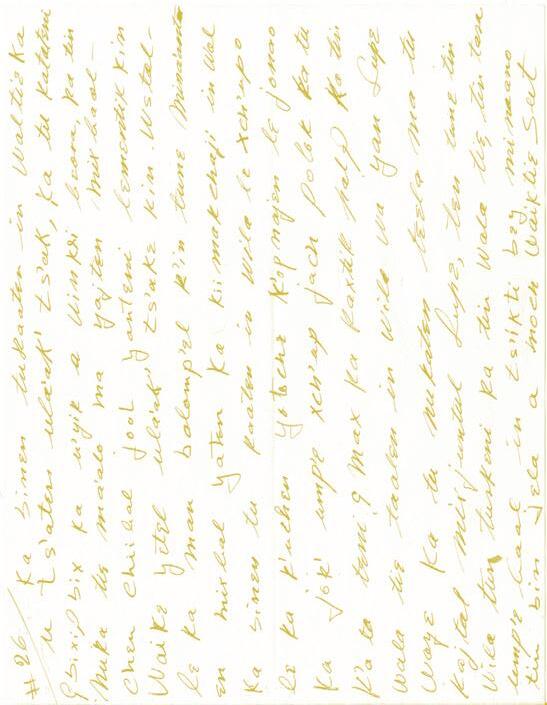 #26/ Ka sinen tukaaten in Waltie Ka
u ts'aten ulaak' tsak, Ka tu katateni
¿bixij bix Ka u'yik a Uinkli beora, Ka tin
nuka tie maalo ma yajten mix baal-
chen chiibal jool yanteni lementik kin
Waike yetel ulaak' ts'ake kin Wstal-
le ka man bolompel k'in tune
en mixbal yaten Ka kii makchaji in Wol
Ka sinen tu kaaten in Wila le xch'upo
le ka k'uchen yotoche Kopnajen le jonao
Ka jok' umpe xch'up jach Polok Ka tu
K'ata teni ¿Max Ka Kaxtik palp Ka tin
Wala tie taalen in Wile Wa yan Lupe
Waye Ka tu nukaten teela ma tu
Kajtal mixjuntul Lupe, ten tune tin
Wila tun tuskeni Ka tin Wala tie tin ten
umpe baal in tsikti bey mimano
tin bin jela a moch Waiktie Seit